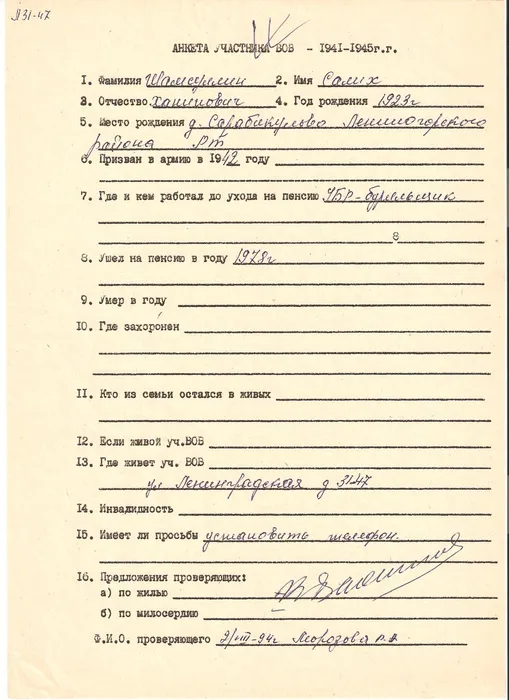 Л31-47
АНКЕТА УЧАСТНИКА ВОВ - 1941-1945г.г.
1. Фамилия Шамсуллин 2. Имя Салих
3. Отчество Ханипович 4. Год рождения 1923г
5. Место рождения д. Сарабикулово Лениногорского
района РТ
6. Призван в армию в 1942 году
7. Где и кем работал до ухода на пенсию УБР-бурильщик
8
8. Ушел на пенсию в году 1978г
9. Умер в году
10. Где захоронен
11. Кто из семьи остался в живых
12. Если живой уч.ВОВ
13. Где живет уч. ВОВ
ул Ленинградская д 31-47
14. Инвалидность
15. Имеет ли просьбы установить телефон.
16. Предложения проверяющих:
а) по жилью
б) по милосердию
Ф.И.О. проверяющего Морозова